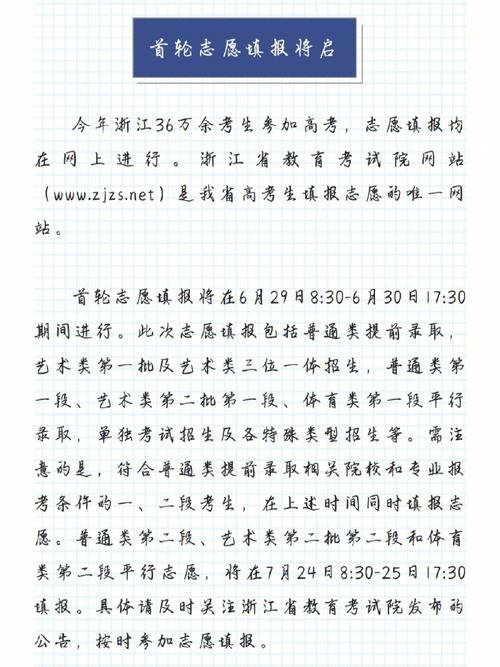 首轮志愿填报将启
今年浙江36万余考生参加高考，志愿填报均
在网上进行。浙江省教育考试院网站
（www.zjzs.net）是我省高考生填报志愿的唯一网
站。
首轮志愿填报将在6月29日8:30-6月30日17:30
期间进行。此次志愿填报包括普通类提前录取，
艺术类第一批及艺术类三位一体招生，普通类第
一段、艺术类第二批第一段、体育类第一段平行
录取，单独考试招生及各特殊类型招生等。需注
意的是，符合普通类提前录取相关院校和专业报
考条件的一、二段考生，在上述时间同时填报志
愿。普通类第二段、艺术类第二批第二段和体育
类第二段平行志愿，将在7月24日8:30-25日17:30
填报。具体请及时关注浙江省教育考试院发布的
公告，按时参加志愿填报。